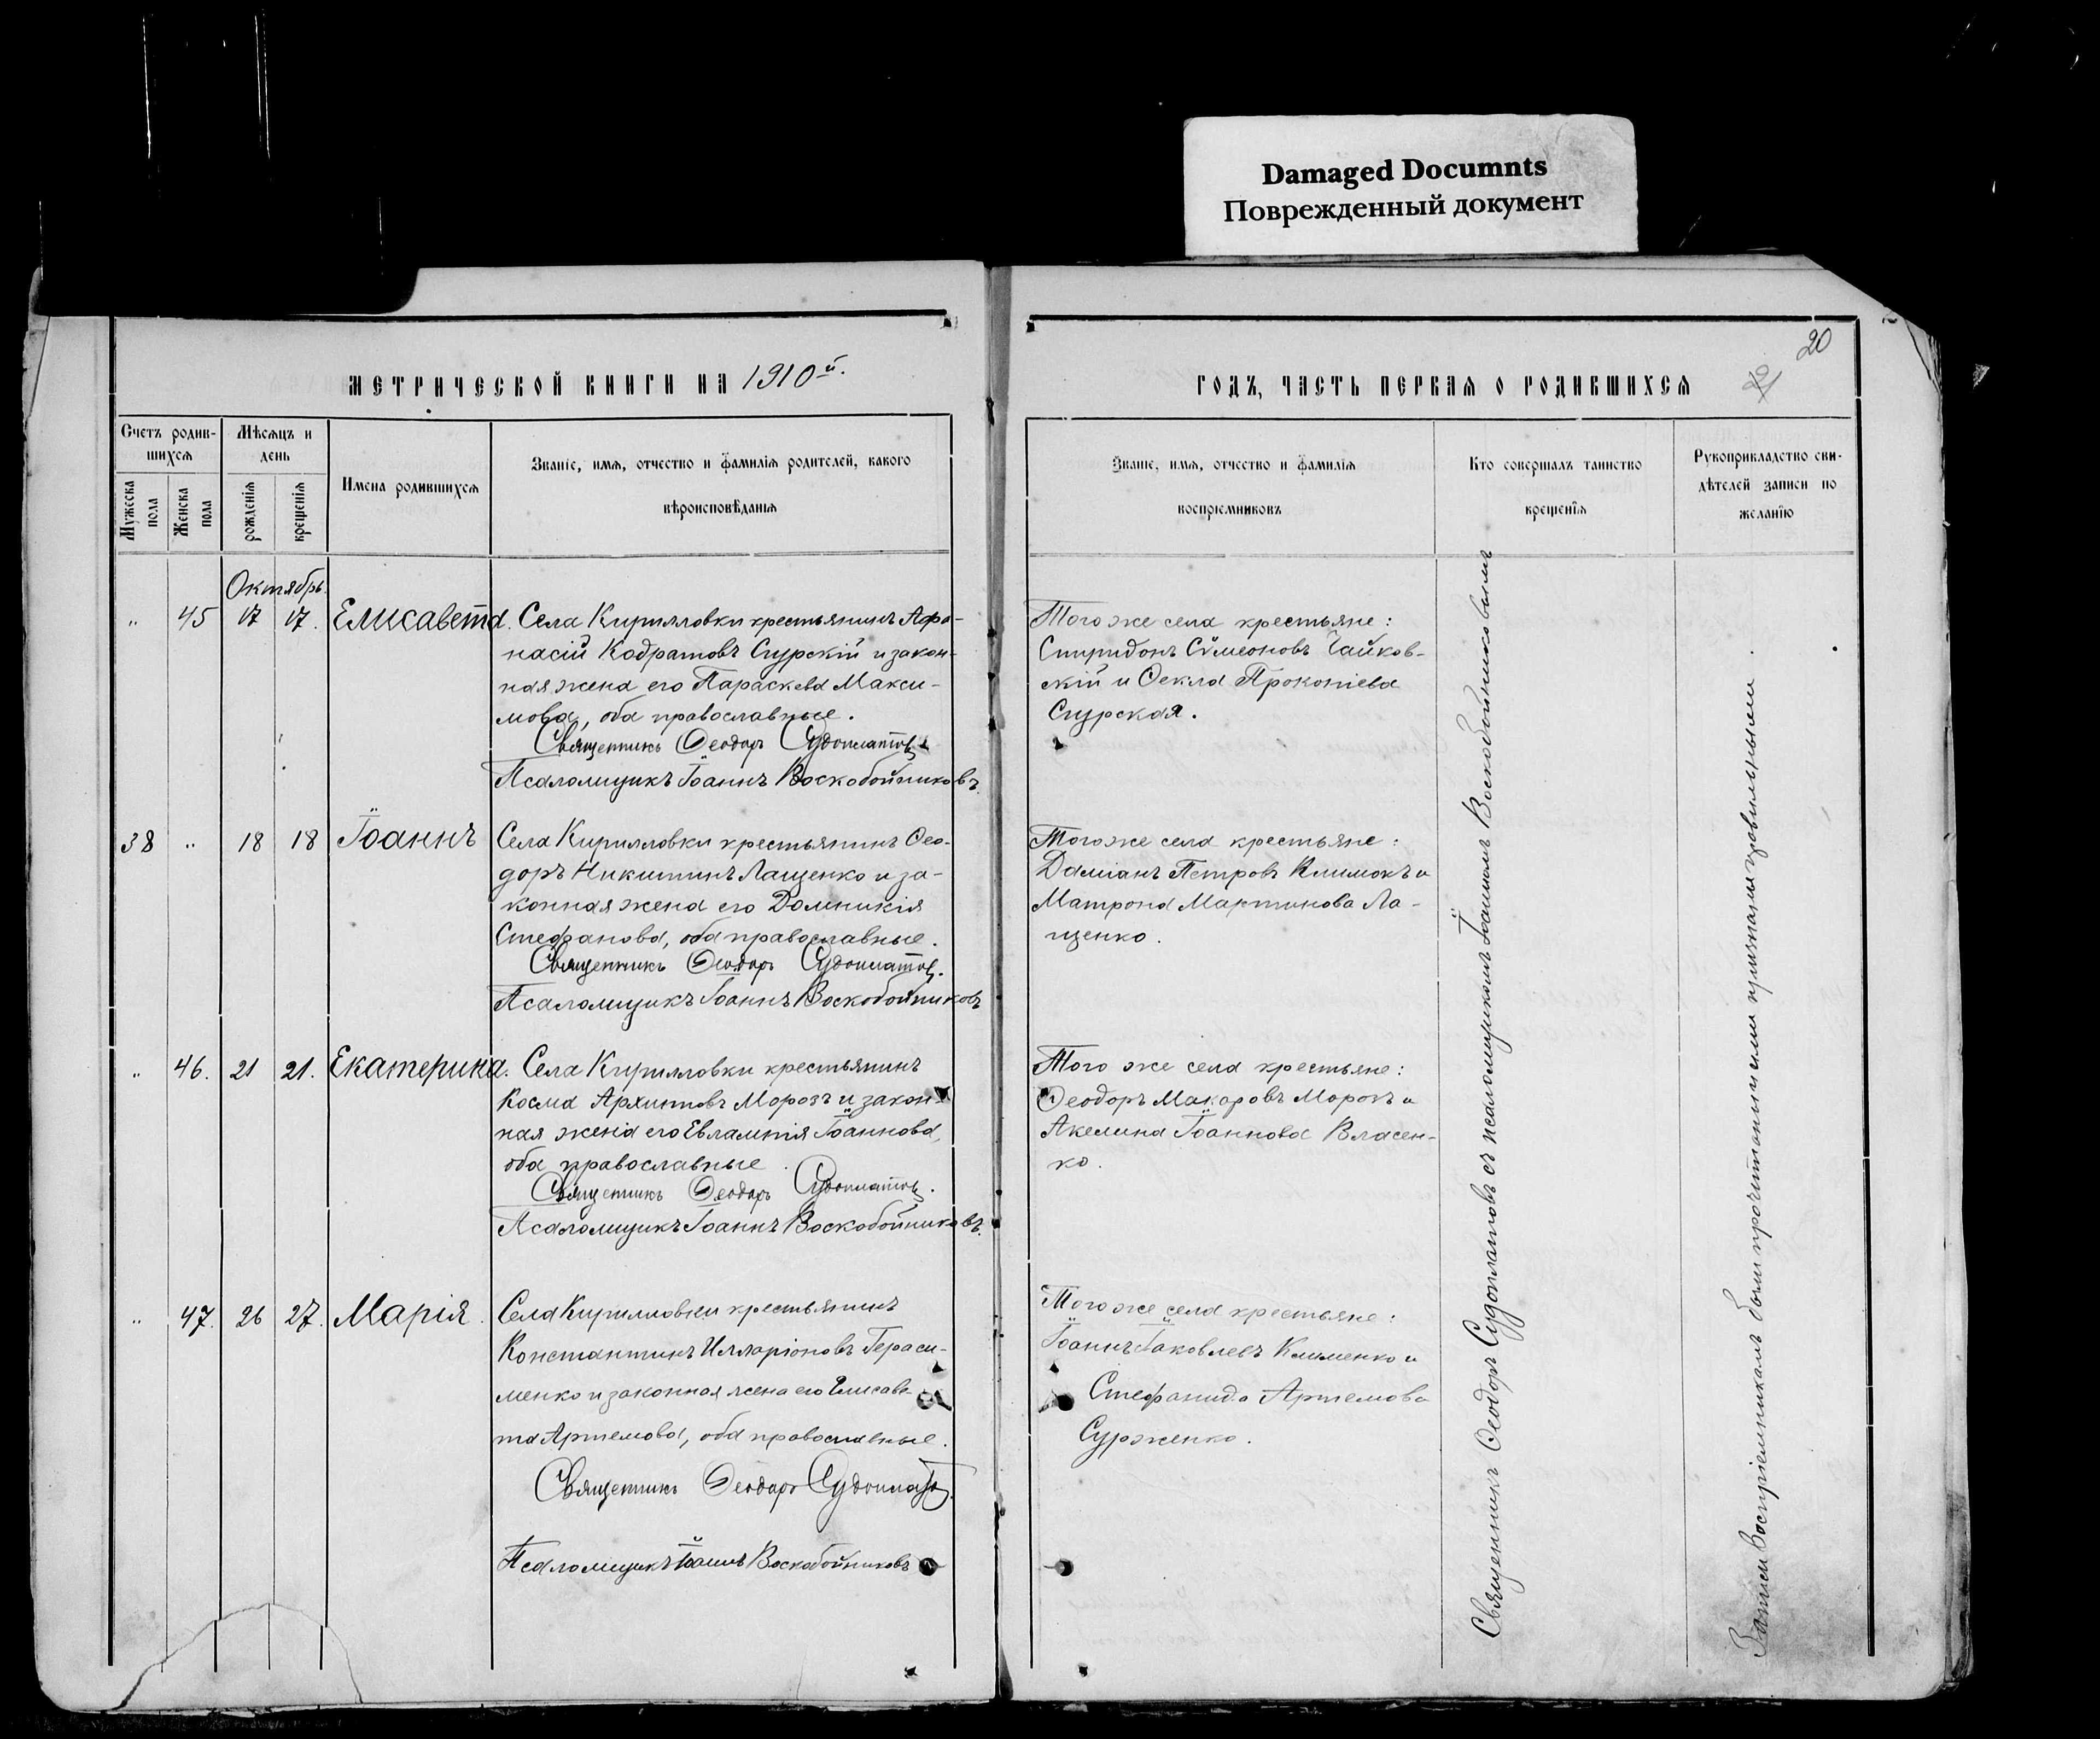 Damaged Documnts
Поврежденный документ
20
МЕТРИЧЕСКОЙ КНИГИ НА 1910й.
ГОДЪ, ЧАСТЬ ПЕРВАЯ О РОДИВШИХСЯ
Счетъ родив-
шихся
Мужеска
пола
Женска
пола
Мѣсяцъ и
день
рожденія
крещенія
Имена родившихся
Званіе, имя, отчество и фамилія родителей, какого
вѣроисповѣданія
Званіе, имя, отчество и фамилія
воспріемниковъ
Кто совершалъ таинство
крещенія
Рукоприкладство сви-
дѣтелей записи по
желанію
Октябрь.
" 45 17 17. Елисавета.
Села Кирилловки крестьянинъ Афа-
насій Кодратовъ Сурскій и закон-
ная жена его Параскева Макси-
мова, оба православные.
Священникъ Ѳеодоръ Судоплатовъ
Псаломщикъ Іоаннъ Воскобойниковъ.
Того же села крестьяне:
Спиридонъ Сѵмеоновъ Чайков-
скій и Ѳекла Прокопіева
Сурская.
38 " 18 18 Іоаннъ
Села Кирилловки крестьянинъ Ѳео-
доръ Никитинъ Лащенко и за-
конная жена его Домникія
Стефанова, оба православные.
Священникъ Ѳеодоръ Судоплатовъ.
Псаломщикъ Іоаннъ Воскобойниковъ
Того же села крестьяне:
Даміанъ Петровъ Климокъ и
Матрона Мартинова Ла-
щенко.
" 46. 21 21. Екатерина.
Села Кирилловки крестьянинъ
Косма Архиповъ Морозъ и закон-
ная жена его Евлампія Іоаннова,
оба православные.
Священникъ Ѳеодоръ Судоплатовъ.
Псаломщикъ Іоаннъ Воскобойниковъ.
Того же села крестьяне:
Ѳеодоръ Макаровъ Морозъ и
Акелина Іоаннова Власен-
ко.
" 47. 26 27. Марія.
Села Кирилловки крестьянинъ
Константинъ Илларіоновъ Гераси-
менко и законная жена его Елисаве-
та Артемова, оба православные.
Священникъ Ѳеодоръ Судоплатовъ.
Псаломщикъ Іоаннъ Воскобойниковъ
Того же села крестьяне:
Іоаннъ Іаковлевъ Клименко и
Стефанида Артемова
Сурженко.
Священникъ Ѳеодоръ Судоплатовъ съ псаломщикомъ Іоанномъ Воскобойниковымъ
Записи воспріемникамъ были прочитаны и ими признаны правильными.